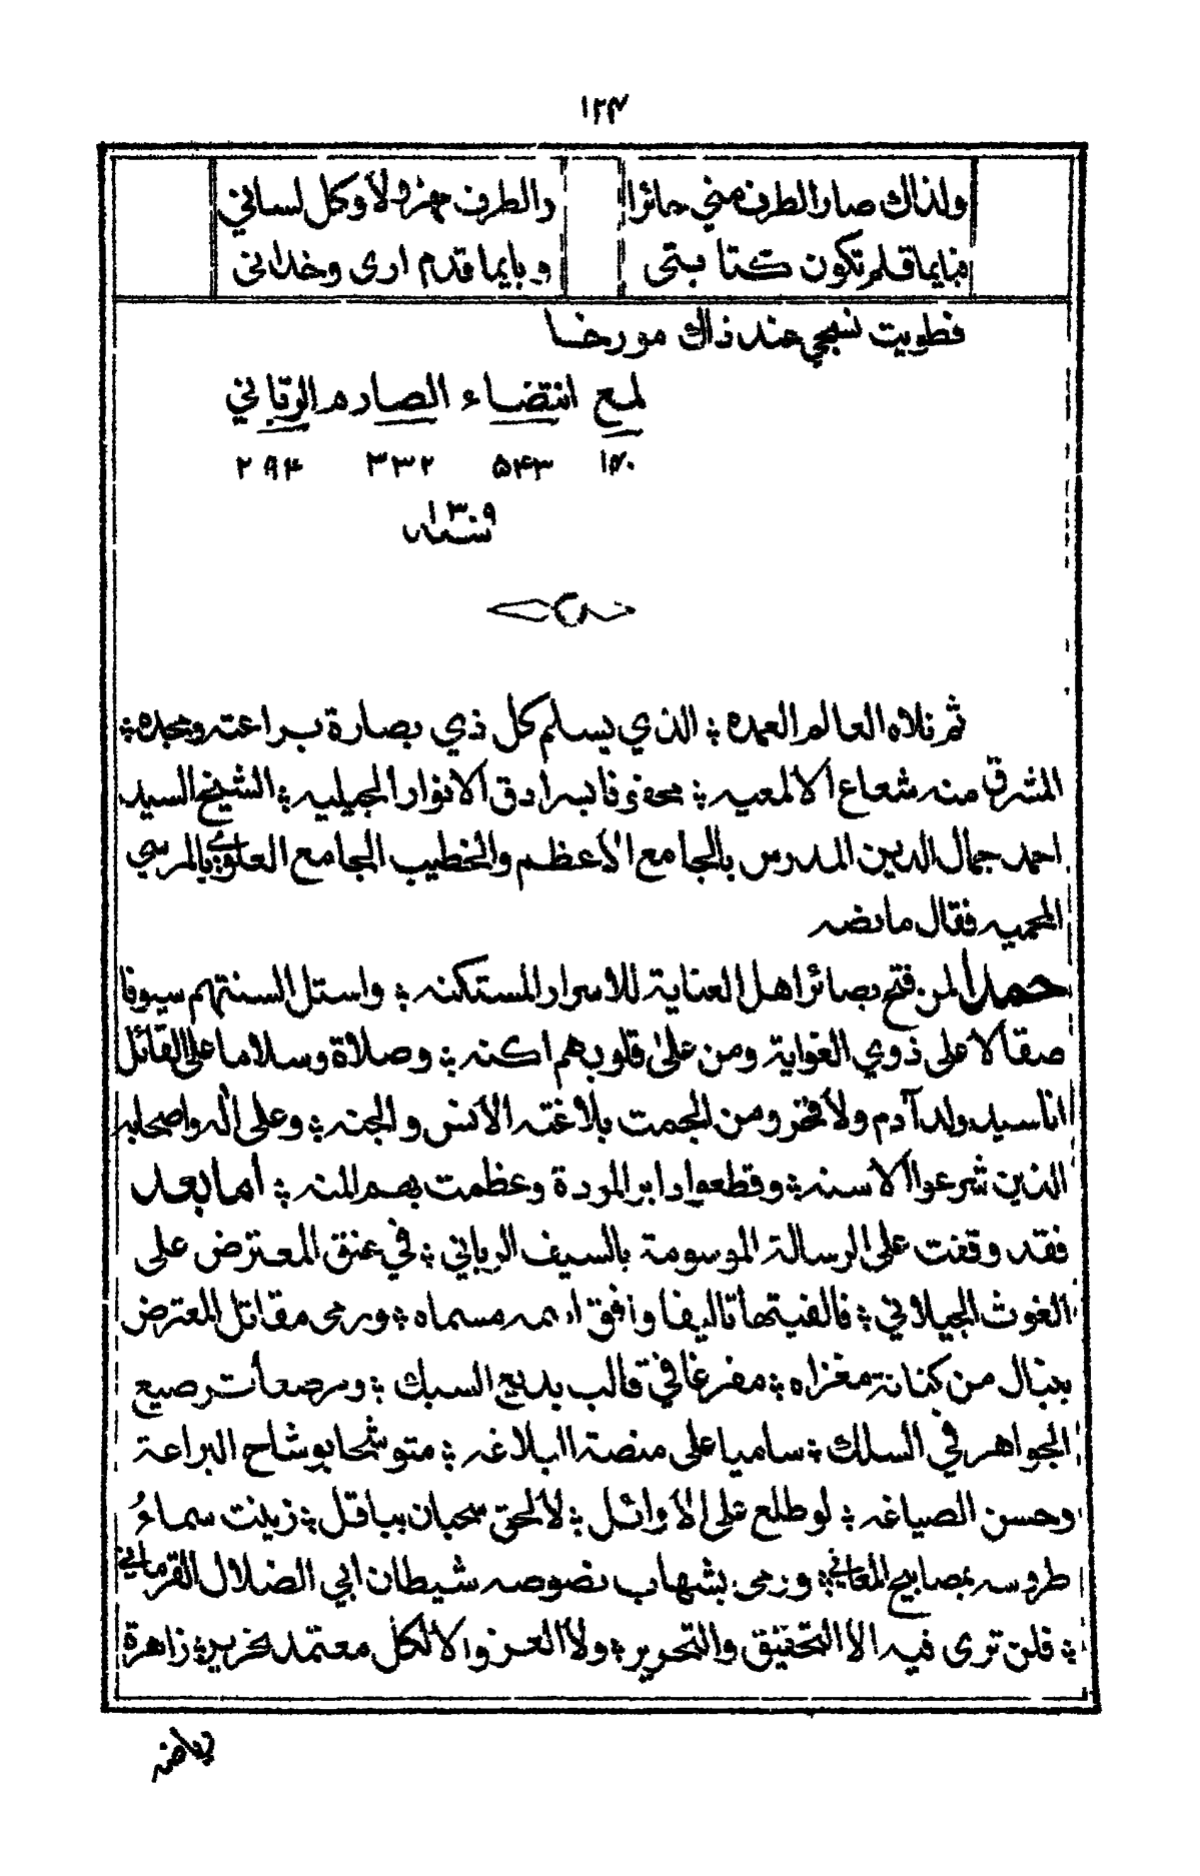 ١٢٤
ولذاك صار الطرف مني حائرا والطرف مهزولا وكل لساني
فبايما قلم تكون كتابتي وبايما قدم ارى وخداني
فطويت نسجي عند ذاك مورخا
لمع انتضاء الصارم الرباني
١٤٠ ٥٤٣ ٣٣٢ ٢٩٤
سنة ١٣٠٩
ثم تلاه العالم العمده ؛ الذي يسلم كل ذي بصارة ببراعته ومجده ؛
المشرق منه شعاع الالمعيه ؛ محفوفا بسرادق الانوار الجيليه ؛ الشيخ السيد
احمد جمال الدين المدرس بالجامع الاعظم والخطيب الجامع العلوي بالمرسي
المحميه فقال ما نصه
حمدا لمن فتح بصائر اهل العناية للاسرار المستكنه ؛ واستل السنتهم سيوفا
صقالا على ذوي الغواية ومن على قلوبهم اكنه ؛ وصلاة وسلاما على القائل
انا سيد ولد آدم ولا فخر ومن الجمت بلاغته الانس والجنه ؛ وعلى اله واصحابه
الذين شرعوا الاسنه ؛ وقطعوا دابر المردة وعظمت بهم المنه ؛ اما بعد
فقد وقفت على الرسالة الموسومة بالسيف الرباني ؛ في عنق المعترض على
الغوث الجيلاني ؛ فالفيتها تاليفا وافق اسمه مسماه ؛ ورمى مقاتل المعترض
بنبال من كنانة مغزاه ؛ مفرغا في قالب بديع السبك ؛ ومرصعا ترصيع
الجواهر في السلك ؛ ساميا على منصة البلاغه ؛ متوشحا بوشاح البراعة
وحسن الصياغه ؛ لو طلع على الاوائل ؛ لالحق سحبان بباقل ؛ زينت سماءُ
طروسه بمصابيح المعاني ؛ ورمى بشهاب نصوصه شيطان ابي الضلال القرماني
؛ فلن ترى فيه الا التحقيق والتحرير ؛ ولا العزو الا لكل معتمد نحرير ؛ زاهرة